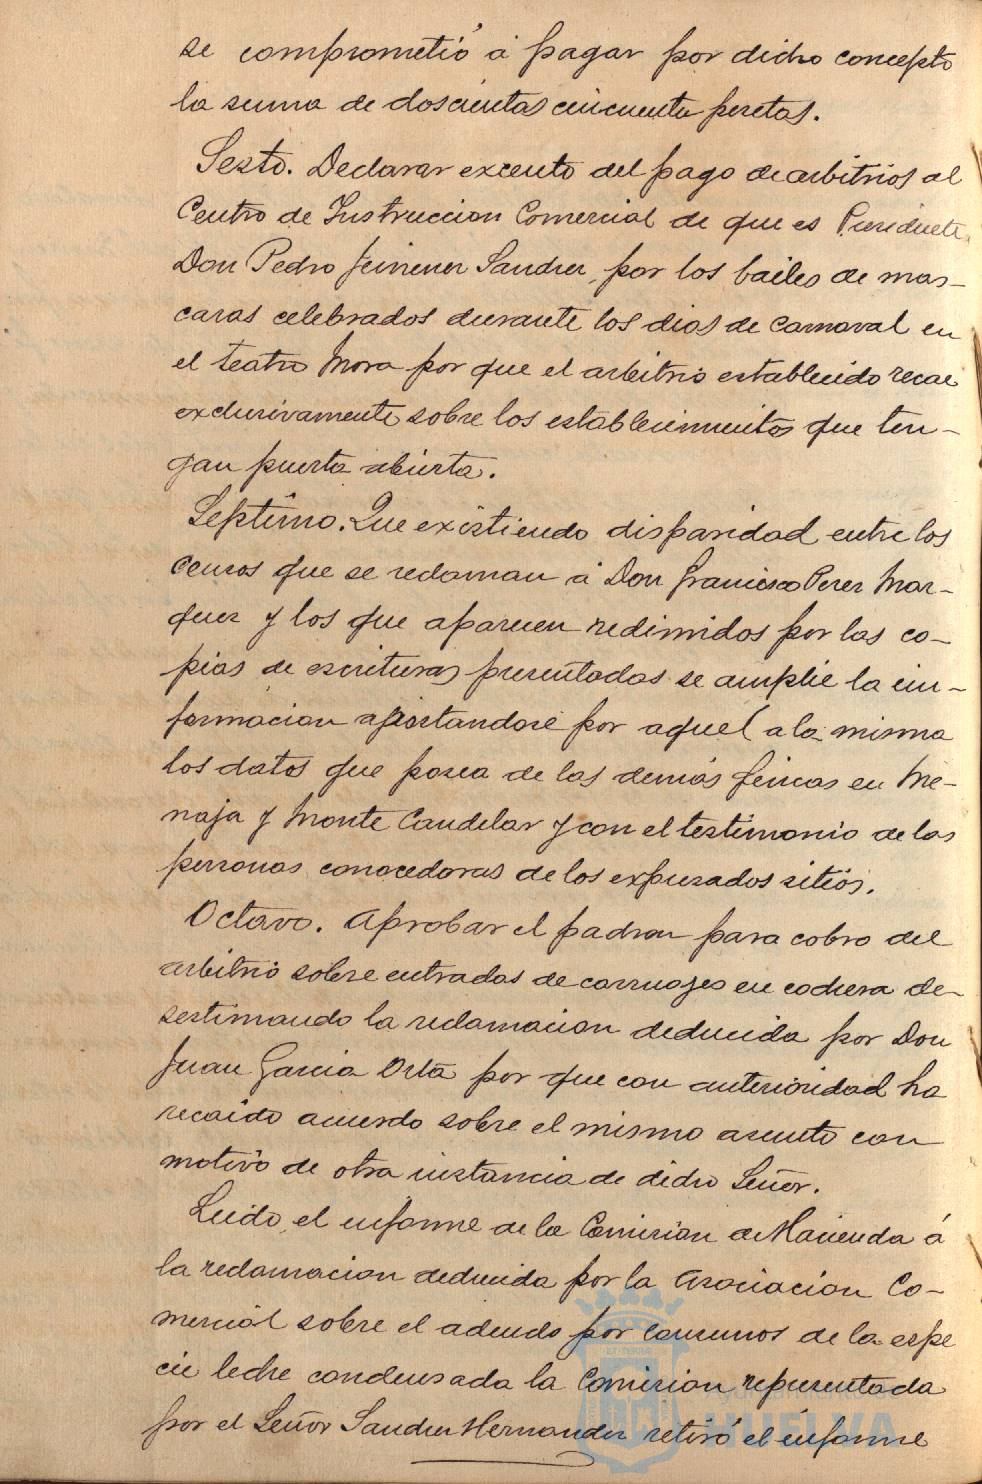 se comprometió á pagar por dicho concepto
la suma de doscientas cincuenta pesetas.
Sesto. Declarar excento del pago de arbitrios al
Centro de Instruccion Comercial de que es Presidente
Don Pedro Jimenez Sanchez, por los bailes de mas-
caras celebrados durante los dias de Carnaval en
el teatro Mora por que el arbitrio establecido recae
exclusivamente sobre los establecimientos que ten-
gan puerta abierta.
Septimo. Que existiendo disparidad entre los
censos que se reclaman á Don Francisco Perez Mar-
quez y los que aparecen redimidos por las co-
pias de escrituras presentadas se amplie la in-
formacion aportandose por aquel a la misma
los datos que posea de las demás fincas en Me-
naja y Monte Candelar y con el testimonio de las
personas conocedoras de los expresados sitios.
Octavo. Aprobar el padron para cobro del
arbitrio sobre entradas de carruajes en cochera de-
sestimando la reclamacion deducida por Don
Juan Garcia Orta por que con anterioridad ha
recaido acuerdo sobre el mismo asunto con
motivo de otra instancia de dicho Señor.
Leido el informe de la Comision de Hacienda á
la reclamacion deducida por la Asociacion Co-
mercial sobre el adeudo por consumos de la espe
cie leche condensada la Comision representada
por el Señor Sanchez Hernandez retiró el informe
HUELVA